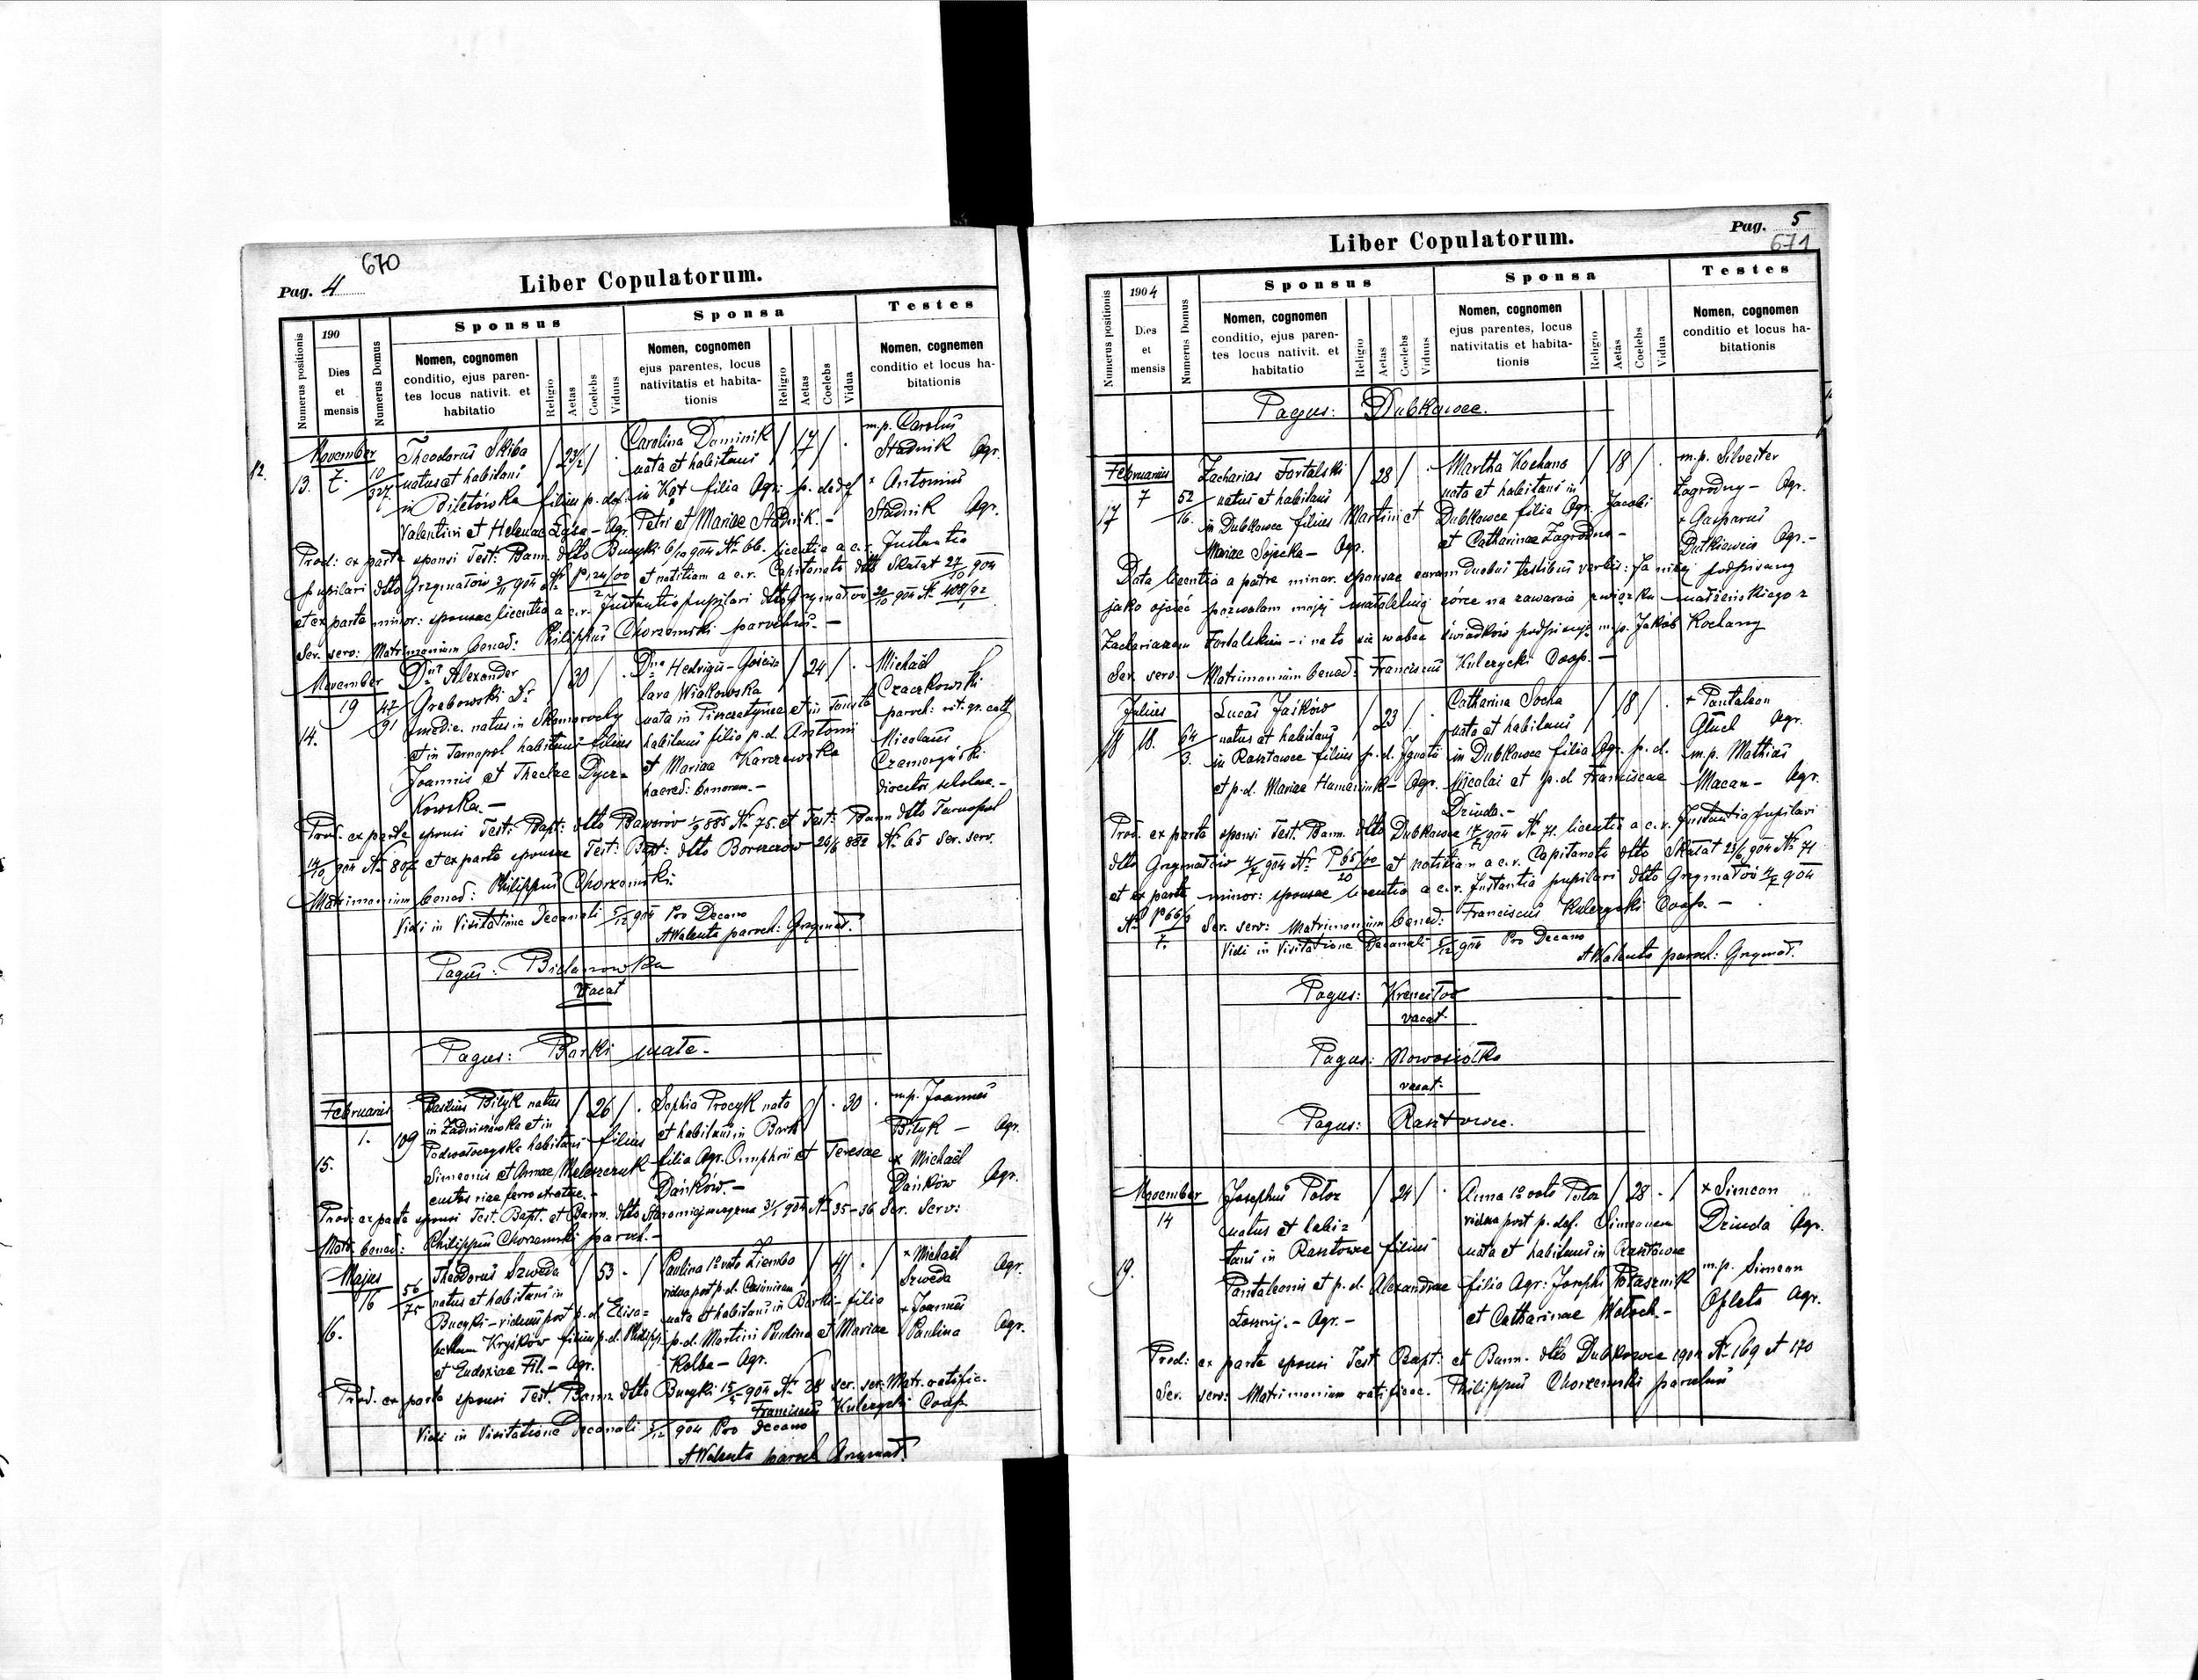 670
Pag. 4
Liber Copulatorum.
Numerus positionis
190
Dies
et
mensis
Numerus Domus
Sponsus
Nomen, cognomen
conditio, ejus paren-
tes locus nativit. et
habitatio
Religio
Aetas
Coelebs
Viduus
Sponsa
Nomen, cognomen
ejus parentes, locus
nativitatis et habita-
tionis
Religio
Aetas
Coelebs
Vidua
Testes
Nomen, cognemen
conditio et locus ha-
bitationis
12.
November
13. 7. 10/327
Theodorus Skiba / 23½ /
natus et habitans
in Biletówka filius p. def.
Valentini et Helenae - Agr.
Carolina Dominik / 17 / .
nata et habitans
in filia Agr. p. def
Petri et Mariae Stadnik. -
m.p. Carolus
Stadnik Agr.
× Antonius
Stadnik Agr.
Prod: ex parte sponsi Test: Bann. dtto Bucyki 6/10 904 № 66. licentia a c. r. Instantia
pupilari dtto Grzymałów 904 et notitiam a c. r. Capitanatu dtto Skałat 27/10 904
et ex parte minor: sponsae licentia a c. r. Instantia pupilari dtto Grzymałów 20/10 904 № 408/92
Ser. serv: Matrimonium bened: Philippus Chorzemski parochus. -
November
19 47/91
14.
Dnus Alexander / 30 / .
Grabowski Dr
medic. natus in Skomorochy
et in Tarnopol habitans filius
Joannis et Theclae Dycz=
kowska. -
Dna Hedvigis / 24 / .
lara Wiakowska
nata in et in Touste
habitans filia p. d. Antonii
et Mariae Karczewska
haered: bonorum. -
Michaël
Czaczkowski
paroch: rit. gr. cath
Nicolaus
director scholae. -
Prod. ex parte sponsi Test: Bapt: dtto Baworów 1/9 885 № 75. et Test: Bann dtto Tarnopol
14/10 904 № 807 et ex parte sponsae Test: Bapt: dtto Borszczów 26/6 882 № 65 Ser. serv.
Matrimonium bened: Philippus Chorzemski.
Vidi in Visitatione Decanali 5/12 904 Pro Decano
AWalenta paroch: Grzymał.
Pagus: Bielanowka
Vacat
Pagus: Borki małe. -
Februarius
1. 109
15.
Basilius Bilyk natus / 26 / .
in Zadniszówka et in
Podwołoczyska habitans filius
Simeonis et Annae
custos viae ferro stratae. -
Sophia Procyk nata / . 30 .
et habitans in Bork
filia Agr. Onuphrii et Teresae
Dańków. -
m.p. Joannes
Bilyk - Agr.
× Michaël
Dańków Agr.
Prod: ex parte sponsi Test. Bapt. et Bann. dtto 31/1 904 № 35-36 Ser. Serv:
Matr. bened: Philippus Chorzemski paroch. -
Majus
16 56/75
16.
Theodorus Szweda / 53 . /
natus et habitans in
Bucyki - viduus post p. d. Elisa=
betham Kryśków filius p. d. Philippi
et Eudoxiae Fil. - Agr.
Paulina 1º voto Ziemba / 41 . /
vidua post p. d. Casimirum
nata et habitans in Borki - filia
p. d. Martini Paulina et Mariae
Kolba - Agr.
× Michaël
Szweda Agr.
× Joannes
Paulina Agr.
Prod. ex parte sponsi Test. Bann dtto Bucyki 15/5 904 № 28 ser. ser: Matr. ratific.
Franciscus Kulczycki Coop.
Vidi in Visitatione Decanali 5/12 904 Pro Decano
AWalenta paroch Grzymał.
Pag. 5
671
Liber Copulatorum.
Numerus positionis
1904
Dies
et
mensis
Numerus Domus
Sponsus
Nomen, cognomen
conditio, ejus paren-
tes locus nativit. et
habitatio
Religio
Aetas
Coelebs
Viduus
Sponsa
Nomen, cognomen
ejus parentes, locus
nativitatis et habita-
tionis
Religio
Aetas
Coelebs
Vidua
Testes
Nomen, cognomen
conditio et locus ha-
bitationis
Pagus: Dubkowce.
Februarius
7 52/16.
17
Zacharias Fortalski / 28 / .
natus et habitans
in Dubkowce filius Martini et
Mariae Sojecka - Agr.
Martha Kochana / 18 / .
nata et habitans in
Dubkowce filia Agr. Jacobi
et Catharinae Zagrodna -
m.p. Silvester
Zagrodny - Agr.
× Gasparus
Dutkiewicz Agr. -
Data licentia a patre minor. sponsae coram duobus testibus verbis: Ja niżej podpisany
jako ojciec pozwalam mojej małoletniej córce na zawarcie związku małżeńskiego z
Zachariaszem Fortalskim - i na to się wobec świadków podpisuję m.p. Jakób Kochany
Ser. serv. Matrimonium bened: Franciscus Kulczycki Coop. -
Julius
18 18. 64/3.
Lucas Jaśków / 23 / .
natus et habitans
in Rasztowce filius p. d. Ignatii
et p. d. Mariae - Agr.
Catharina Socha / 18 / .
nata et habitans
in Dubkowce filia Agr. p. d.
Nicolai et p. d Franciscae
Dziuda. -
× Pantaleon
Głuch Agr.
m.p. Mathias
Macan - Agr.
Prod. ex parte sponsi Test. Bann. dtto Dubkowce 17/7 904 № 71. licentia a c. r. Instantia pupilari
dtto Grzymałów 904 № P 65/00/20 et notitiam a c. r. Capitanatu dtto Skałat 904 № 71
et ex parte minor: sponsae licentia a c. r. Instantia pupilari dtto Grzymałów 904
№ Ser. serv: Matrimonium bened: Franciscus Kulczycki Coop. -
Vidi in Visitatione Decanali 5/12 904 Pro Decano
AWalenta paroch: Grzymał.
Pagus: Krenciłow
vacat.
Pagus: Nowosiołka
vacat.
Pagus: Rasztowce.
November
14
19.
Josephus Potoz / 24 / .
natus et habi=
tans in Rasztowce filius
Pantaleonis et p. d. Alexandrae
- Agr. -
Anna 1º voto / 28 . /
vidua post p. def. Simeonem
nata et habitans in Rasztowce
filia Agr: Josephi Potasznik
et Catharinae Wołoch. -
× Simeon
Dziuda Agr.
m.p. Simeon
Opleta Agr.
Prod: ex parte sponsi Test Bapt: et Bann. dtto Dubkowce 1904 № 169 et 170
Ser. serv: Matrimonium ratificac. Philippus Chorzemski parochus